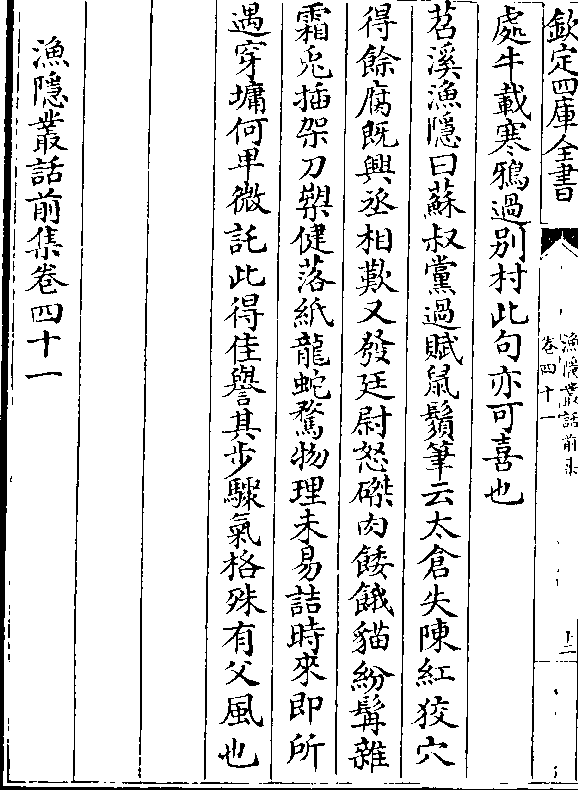 欽定四庫全書
漁隱叢話前集
卷四十一
十二
處牛載寒鴉過别村此句亦可喜也
苕溪漁隱曰蘇叔黨過賦鼠鬚筆云太倉失陳紅狡穴
得餘腐既興丞相歎又發廷尉怒磔肉餧餓貓紛髯雜
霜兎插架刀槊健落紙龍蛇騖物理未易詰時來即所
遇穿墉何卑微託此得佳譽其步驟氣格殊有父風也
漁隱叢話前集卷四十一